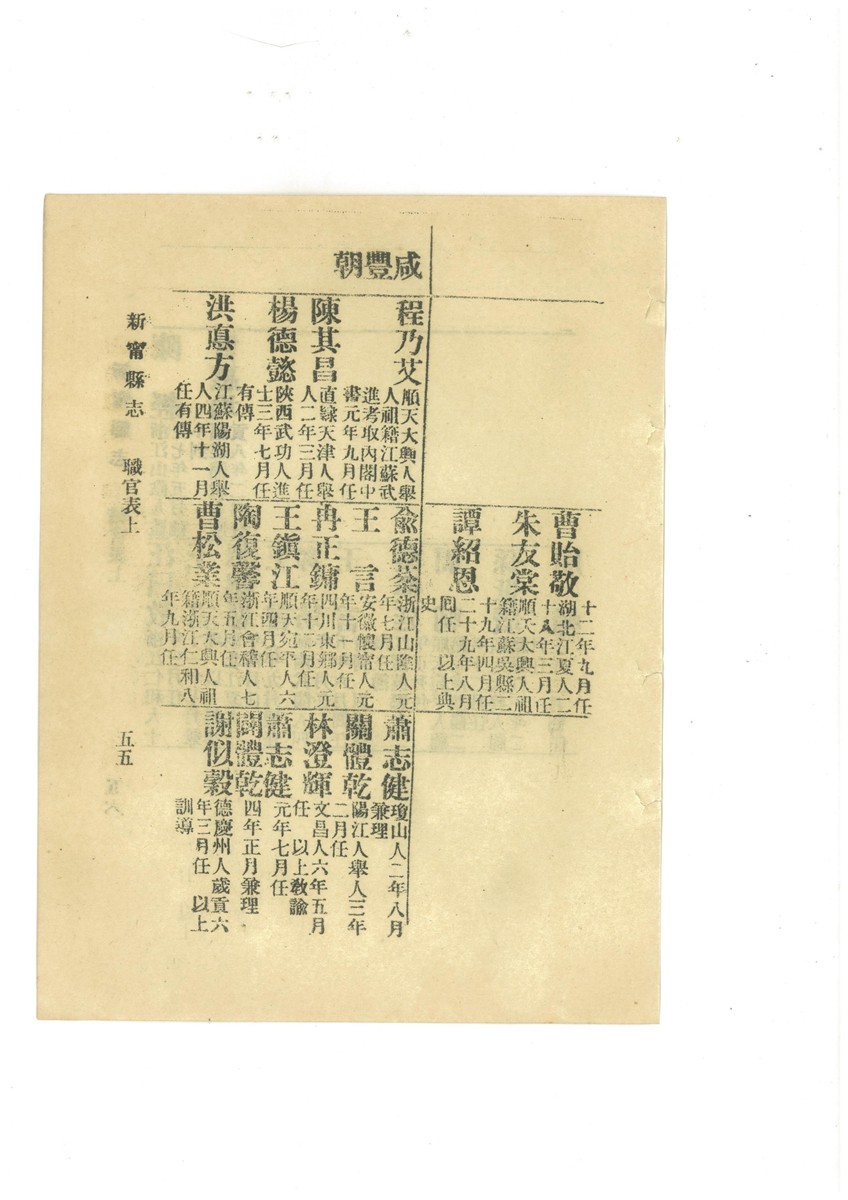 十二年九月任
曹貽敬
湖北江夏人二
十八年三月任
朱友棠
順天大興人祖
籍江蘇吳縣二
十九年四月任
譚紹恩
二十九年八月
回任 以上典
史
咸豐朝
程乃艾
順天大興人舉
人祖籍江蘇武
進考取內閣中
書元年九月任
陳其昌
直隸天津人舉
人二年三月任
楊德懿
陝西武功人進
士三年七月任
有傳
洪悳方
江蘇陽湖人舉
人四年十一月
任有傳
兪德棻
浙江山陰人元
年七月任
王 言
安徽懷甯人元
年十一月任
冉正鏞
四川東鄉人元
年十二月任
王鎭江
順天宛平人六
年四月任
陶復馨
浙江會稽人七
年五月任
曹松業
順天大興人祖
籍浙江仁和八
年九月任
蕭志健
瓊山人二年八月
兼理
關體乾
陽江人舉人三年
二月任
林澄輝
文昌人六年五月
任 以上敎諭
蕭志健
元年七月任
關體乾
四年正月兼理
謝似穀
德慶州人歲貢六
年三月任 以上
訓導
新甯縣志 職官表上
五五